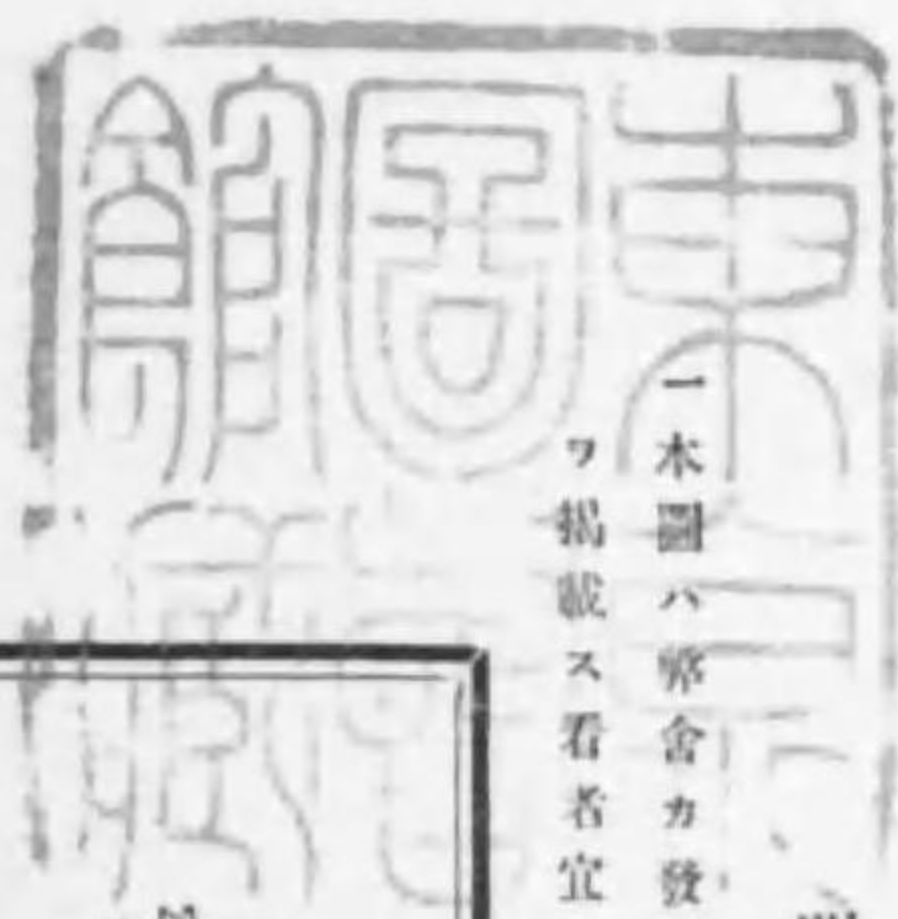 東
圖
館
一本圖ハ弊舍カ發
ヲ揭載ス看者宜